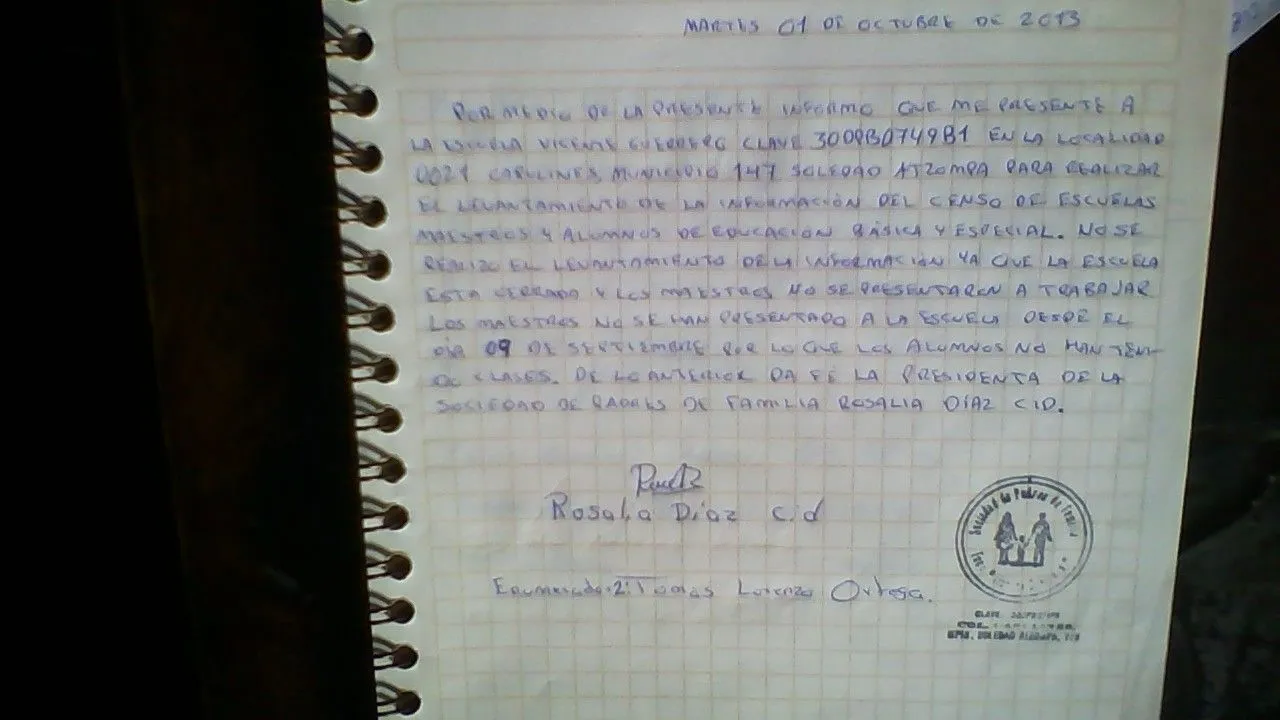 MARTES 01 DE OCTUBRE DE 2013
POR MEDIO DE LA PRESENTE INFORMO QUE ME PRESENTE A
LA ESCUELA VICENTE GUERRERO CLAVE 30DPB0749B1 EN LA LOCALIDAD
0021 CAPULINES, MUNICIPIO 147 SOLEDAD ATZOMPA PARA REALIZAR
EL LEVANTAMIENTO DE LA INFORMACIÓN DEL CENSO DE ESCUELAS
MAESTROS Y ALUMNOS DE EDUCACIÓN BÁSICA Y ESPECIAL. NO SE
REALIZO EL LEVANTAMIENTO DE LA INFORMACIÓN YA QUE LA ESCUELA
ESTA CERRADA Y LOS MAESTROS NO SE PRESENTARON A TRABAJAR
LOS MAESTROS NO SE HAN PRESENTADO A LA ESCUELA DESDE EL
DÍA 09 DE SEPTIEMBRE POR LO QUE LOS ALUMNOS NO HAN TENI-
DO CLASES. DE LO ANTERIOR DA FE LA PRESIDENTA DE LA
SOCIEDAD DE PADRES DE FAMILIA ROSALIA DÍAZ CID.
Rosalia Díaz Cid
Sociedad de Padres de Familia
Tomas Lorenzo Ortega.
CLAVE
COL.
MPIO. SOLEDAD ATZOMPA, VER